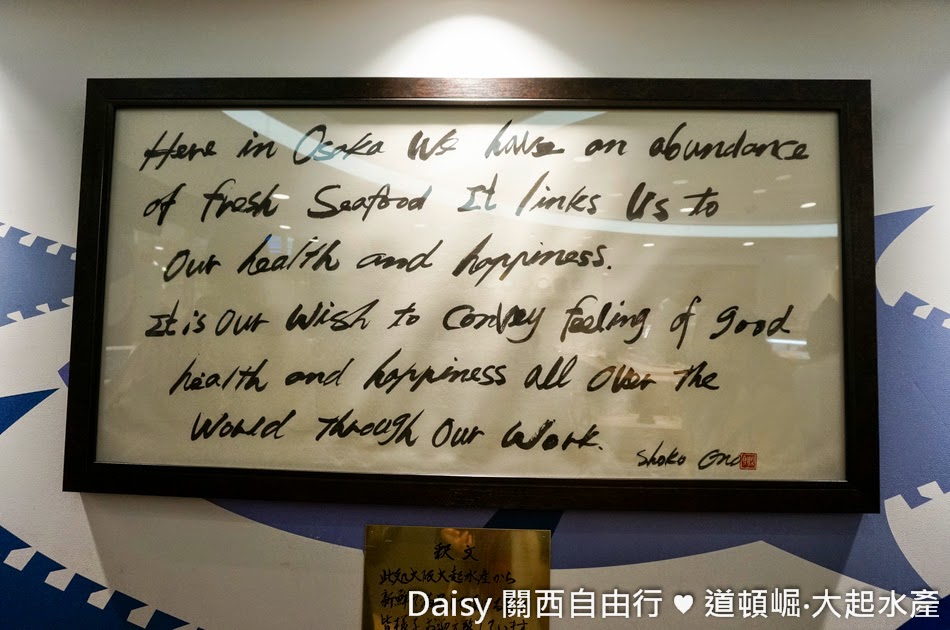 Here in Osaka We have an abundance
of fresh Seafood It links Us to
Our health and happiness.
It is Our Wish to Convey feeling of good
health and happiness all Over The
World Through Our Work.
Shoko Ono
釈文
此処大阪大起水産から
新鮮
Daisy 關西自由行 ♥ 道頓崛·大起水產